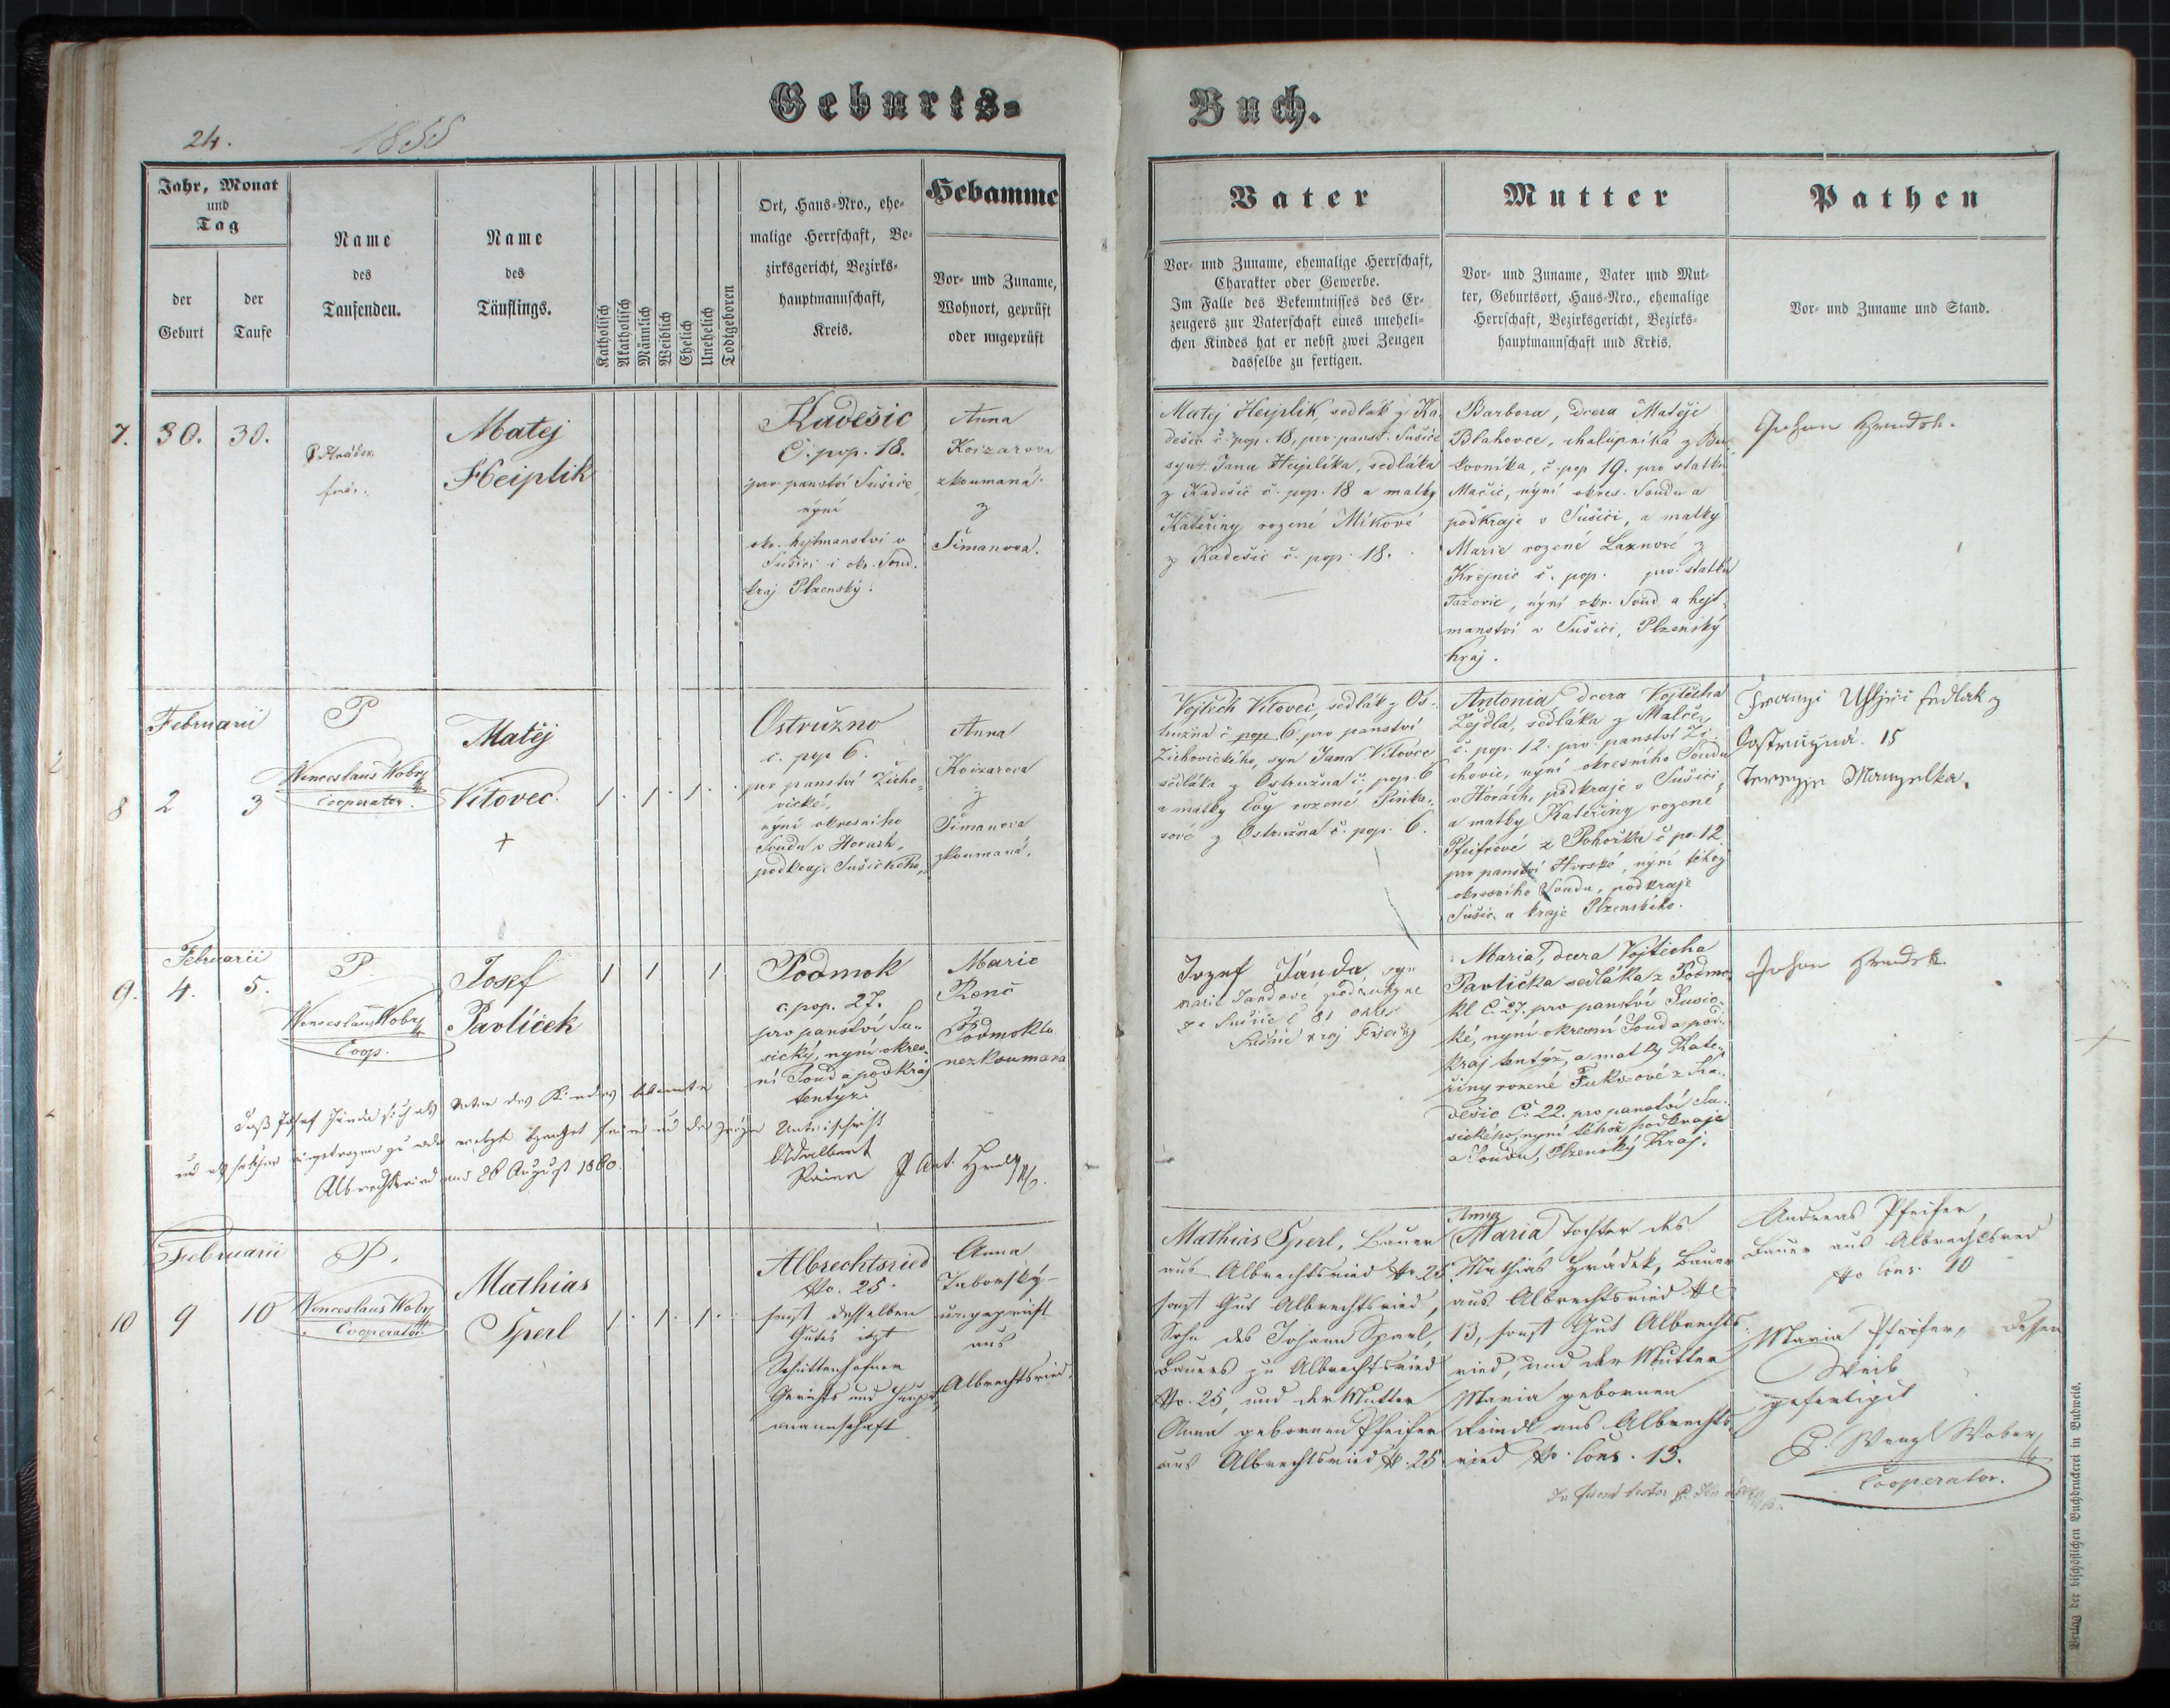 Geburts-
Buch.
24.
1855
Jahr, Monat
und
Tag
der
Geburt
der
Taufe
Name
des
Taufenden.
Name
des
Täuflings.
Katholisch
Akatholisch
Männlich
Weiblich
Ehelich
Unehelich
Todtgeboren
Ort, Haus-Nro., ehe-
malige Herrschaft, Be-
zirksgericht, Bezirks-
hauptmannschaft,
Kreis.
Hebamme
Vor- und Zuname,
Wohnort, geprüft
oder ungeprüft
Vater
Vor- und Zuname, ehemalige Herrschaft,
Charakter oder Gewerbe.
Im Falle des Bekenntnisses des Er-
zeugers zur Vaterschaft eines uneheli-
chen Kindes hat er nebst zwei Zeugen
dasselbe zu fertigen.
Mutter
Vor- und Zuname, Vater und Mut-
ter, Geburtsort, Haus-Nro., ehemalige
Herrschaft, Bezirksgericht, Bezirks-
hauptmannschaft und Kreis.
Pathen
Vor- und Zuname und Stand.
7.
30.
30.
Matej
Heiplik
Kadešic
Č. pop. 18.
pro panství Sušice
nyní
okr. hejtmanství v
Sušici i okr. Soud.
kraj Plzenský.
Anna
Koizarova
zkoumaná
z
Šimanova.
Matej Heiplik, sedlák z Ka
dešic č. pop. 18, pro panst. Sušice
syn Jana Heiplika, sedláka
z Kadešic č. pop. 18 a matky
Kateřiny rozené Míkové
z Kadešic č. pop. 18.
Barbora, dcera Matěje
Blahovce, chalupníka z
č. pop 19. pro statku
Mačic, nyní okres. Soudu a
podkraje v Sušici, a matky
Marie rozené Laxnové z
Krejnic č. pop. pro. statku
Tažovic, nyní okr. Soud a hejt-
manství v Sušici, Plzenský
kraj.
Johan
Februarii
8
2
3
P
Wenceslaus Wobry
Cooperator.
Matěj
Vítovec.
+
1. 1. 1.
Ostružno
č. pop 6.
pro panství Žicho-
vické,
nyní okresního
Soudu v Horách,
podkraje Sušického,
Anna
Koizarova
z
Šimanova
zkoumaná.
Vojtěch Vítovec, sedlák z Os-
tružna č. pop. 6. pro panství
Žichovického, syn Jana Vítovce
sedláka z Ostružna č. pop. 6
a matky Evy rozené Pinka-
sové z Ostružna č. pop. 6.
Antonia, dcera Vojtěcha
Zejdla, sedláka z Malče-
č. pop. 12. pro panství Ži-
chovic, nyní okresního Soudu
v Horách, podkraje v Sušici,
a matky Kateřiny rozené
Pfeifrové z Pohorska č. po. 12.
pro panství Horské, nyní téhož
okresního Soudu, podkraje
Sušic. a kraje Plzenského.
sedlak z
15
Februarii
9.
4.
5.
P.
Wenceslaus Wobry
Coop.
Josef
Pavlíček
1 1 1
Podmok
č. pop. 27.
pro panství Su-
šický, nyní okres-
ní Soud a podkraj
tentýž.
Marie
Renč
z
Podmokla
nezkoumaná
Jozef Janda, syn
Marie Jandové podruhyně
ze Sušic č 81 okres
Sušice kraj
Maria, dcera Vojtěcha
Pavlíčka sedláka z Podmo-
kl Č. 27. pro panství Sušic-
ké, nyní okresní Soud a pod-
kraj tentýž, a matky Kate-
řiny rozené Fuksové z Ka-
dešic Č. 22. pro panství Su-
šického, nyní téhož podkraje
a Soudu, Plzenský Kraj.
Johan
daß Josef Janda sich als Vater des Kindes bekannte
und als solcher eingetragen zu
Unterschrift
Albrechtsried am 28 August 1860.
Adalbert
Februarii
10
9
10
P.
Wenceslaus Wobry
Cooperator.
Mathias
Sperl
1. 1. 1.
Albrechtsried
No. 25.
sonst desselben
Gutes itzt
Schüttenhofner
Gerichts und Haupt-
mannschaft
Anna
Taborský
ungeprüft
aus
Albrechtsried.
Mathias Sperl, Bauer
aus Albrechtsried No. 25
sonst Gut Albrechtsried,
Sohn des Johann Sperl,
Bauers zu Albrechtsried
No. 25, und der Mutter
Anna gebornen Pfeifer
aus Albrechtsried N. 25
Anna
Maria Tochter des
Mathias Hrádek, Bauer
aus Albrechtsried N
13, sonst Gut Albrechts-
ried, und der Mutter
Maria gebornen
aus Albrechts-
ried No. Cons. 13.
Andreas Pfeifer,
Bauer aus Albrechtsried
No Cons. 10
Maria Pfeifer, dessen
Weib
gefertigt
P. Wenzl Wobry
Cooperator.
Verlag der bischöflichen Buchdruckerei in Budweis.